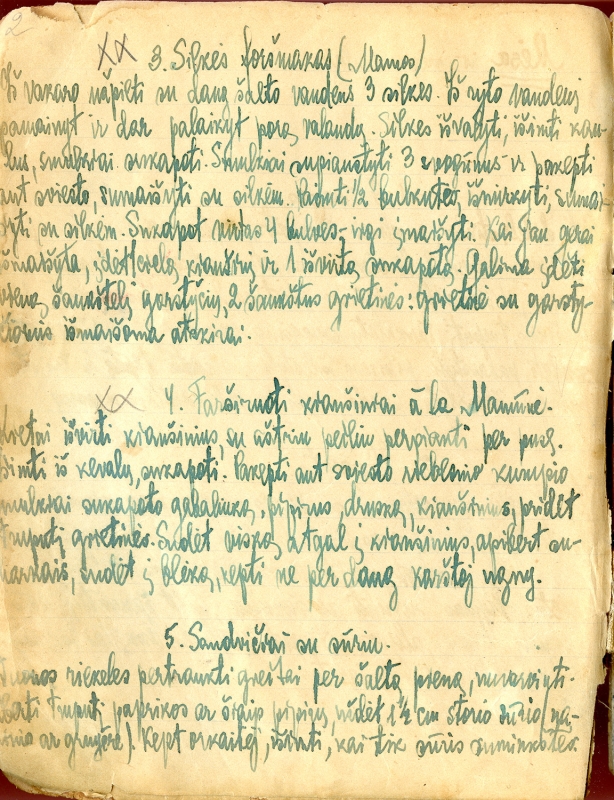 2
XX 3. Silkės foršmakas (Mamos)
Iš vakaro užpilti su daug šalto vandens 3 silkes. Iš ryto vandenį
pamainyt ir dar palaikyt porą valandų. Silkes išvalyti, išimti kau-
lus, smulkiai sukapoti. Smulkiai supiaustyti 3 svogūnus ir pakepti
ant sviesto, sumaišyti su silkėm. Paimti 1/2 bulkutės, išmirkyti, sumai-
šyti su silkėm. Sukapot virtas 4 bulves - irgi įmaišyti. Kai jau gerai
išmaišyta, įdėt žvelą kiaušinį ir 1 išvirtą sukapotą. Galima įdėti
vieną šaukštelį garstyčių, 2 šaukštus grietinės: grietinė su garsty-
čiomis išmaišoma atskirai.
XX 4. Farširuoti kiaušiniai à la Mamūnė.
Kietai išvirti kiaušinius, su aštriu peiliu perpiauti per pusę.
Išimti iš kevalų, sukapoti. Pakepti ant sviesto riebesnio kumpio
smulkiai sukapoto gabaliuką, pipirus, druską, kiaušinius, pridėt
truputį grietinės. Sudėt viską atgal į kiaušinius, apibert su-
harkais, sudėt į blėką, kepti ne per daug karštoj ugny.
5. Sandvičiai su sūriu.
riekeles pertraukti greitai per šaltą pieną, nusausyti.
truputį paprikos ar šiaip pipirų, uždėt 1 1/2 cm storio sūrio
ar gruyère). Kept orkaitėj, išimti, kai tik sūris suminkštės.